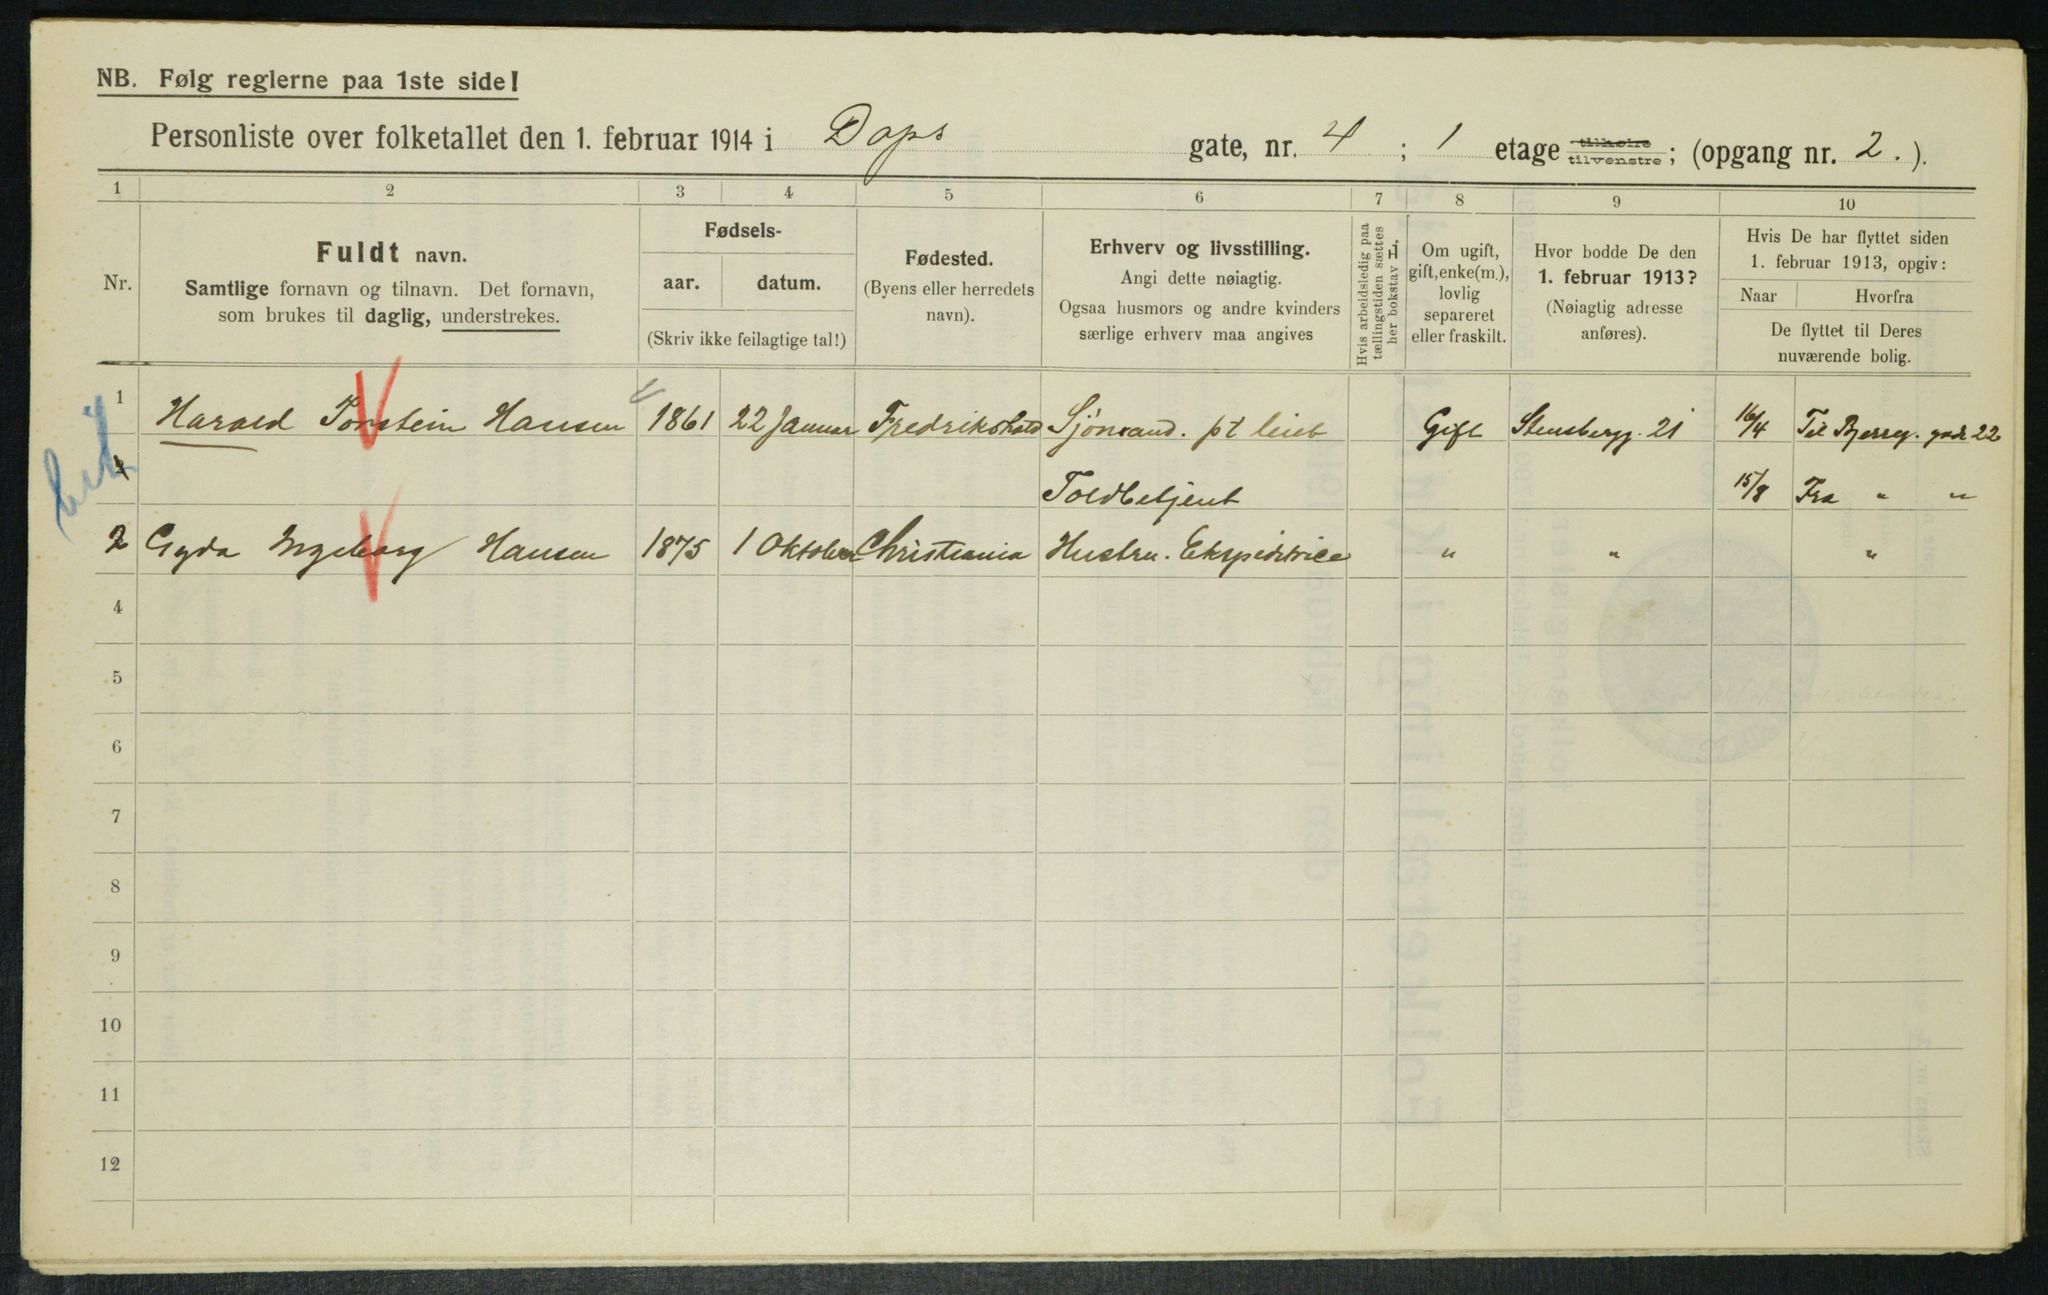 NB. Følg reglerne paa 1ste side!
Personliste over folketallet den 1. februar 1914 i Dops gate, nr. 4 ; 1 etage tilhøire tilvenstre; (opgang nr. 2.).
1 2 3 4 5 6 7 8 9 10
Nr.
Fuldt navn.
Samtlige fornavn og tilnavn. Det fornavn,
som brukes til daglig, understrekes.
Fødsels-
aar. datum.
(Skriv ikke feilagtige tal!)
Fødested.
(Byens eller herredets
navn).
Erhverv og livsstilling.
Angi dette nøiagtig.
Ogsaa husmors og andre kvinders
særlige erhverv maa angives
Hvis arbeidsledig paa
tællingstiden sættes
her bokstav L.
Om ugift,
gift, enke(m.),
lovlig
separeret
eller fraskilt.
Hvor bodde De den
1. februar 1913?
(Nøiagtig adresse
anføres).
Hvis De har flyttet siden
1. februar 1913, opgiv:
Naar Hvorfra
De flyttet til Deres
nuværende bolig.
1 Harald Torstein Hansen 1861 22 Januar Fredrikshald Sjömand. pt Gift Stensbergg. 21 16/4 Til gade 22
Toldbetjent 15/8 Fra " "
2 Gyda Ingeborg Hansen 1875 1 Oktober Christiania Hustru. Ekspeditrice " " "
4
5
6
7
8
9
10
11
12